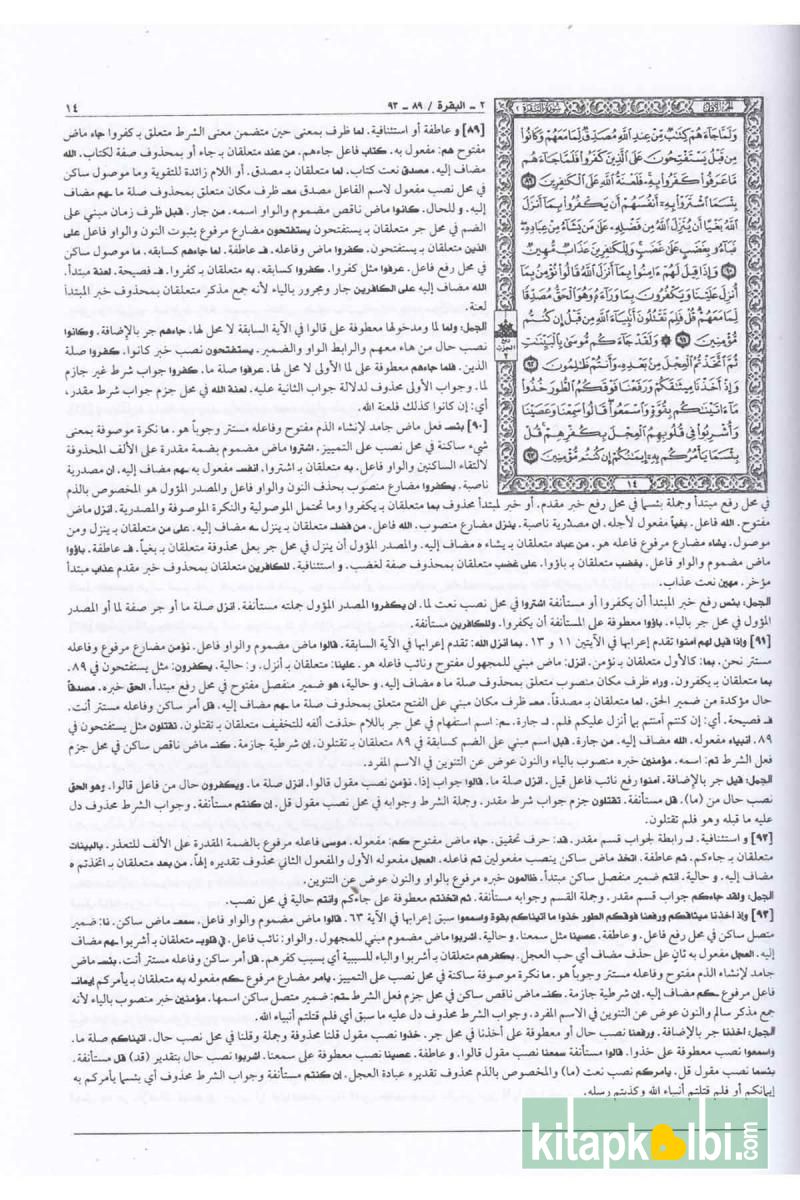 ١٤
٢ ـ البقرة / ٨٩ ـ ٩٣
الجزء الأول
سورة البقرة ٢
وَلَمَّا جَاءَهُمْ كِتَابٌ مِنْ عِندِ اللَّهِ مُصَدِّقٌ لِمَا مَعَهُمْ وَكَانُوا
مِن قَبْلُ يَسْتَفْتِحُونَ عَلَى الَّذِينَ كَفَرُوا فَلَمَّا جَاءَهُم
مَّا عَرَفُوا كَفَرُوا بِهِ فَلَعْنَةُ اللَّهِ عَلَى الْكَافِرِينَ ٨٩
بِئْسَمَا اشْتَرَوْا بِهِ أَنفُسَهُمْ أَن يَكْفُرُوا بِمَا أَنزَلَ
اللَّهُ بَغْيًا أَن يُنَزِّلَ اللَّهُ مِن فَضْلِهِ عَلَى مَن يَشَاءُ مِنْ عِبَادِهِ
فَبَاءُو بِغَضَبٍ عَلَى غَضَبٍ وَلِلْكَافِرِينَ عَذَابٌ مُّهِينٌ
٩٠ وَإِذَا قِيلَ لَهُمْ ءَامِنُوا بِمَا أَنزَلَ اللَّهُ قَالُوا نُؤْمِنُ بِمَا
أُنزِلَ عَلَيْنَا وَيَكْفُرُونَ بِمَا وَرَاءَهُ وَهُوَ الْحَقُّ مُصَدِّقًا
لِّمَا مَعَهُمْ قُلْ فَلِمَ تَقْتُلُونَ أَنبِيَاءَ اللَّهِ مِن قَبْلُ إِن كُنتُم
مُّؤْمِنِينَ ٩١ وَلَقَدْ جَاءَكُم مُّوسَى بِالْبَيِّنَاتِ
ثُمَّ اتَّخَذْتُمُ الْعِجْلَ مِن بَعْدِهِ وَأَنتُمْ ظَالِمُونَ ٩٢
وَإِذْ أَخَذْنَا مِيثَاقَكُمْ وَرَفَعْنَا فَوْقَكُمُ الطُّورَ خُذُوا
مَا ءَاتَيْنَاكُم بِقُوَّةٍ وَاسْمَعُوا قَالُوا سَمِعْنَا وَعَصَيْنَا
وَأُشْرِبُوا فِي قُلُوبِهِمُ الْعِجْلَ بِكُفْرِهِمْ قُلْ
بِئْسَمَا يَأْمُرُكُم بِهِ إِيمَانُكُمْ إِن كُنتُم مُّؤْمِنِينَ ٩٣
١٤
[٨٩] و عاطفة أو استئنافية. لما ظرف بمعنى حين متضمن معنى الشرط متعلق بـ كفروا جاء ماض
مفتوح هم: مفعول به. كتاب فاعل جاءهم. من عند متعلقان بـ جاء أو بمحذوف صفة لكتاب. الله
مضاف إليه. مصدق نعت كتاب. لما متعلقان بـ مصدق. أو اللام زائدة للتقوية وما موصول ساكن
في محل نصب مفعول لاسم الفاعل مصدق معـ ظرف مكان متعلق بمحذوف صلة ما ـهم مضاف
إليه. و للحال. كانوا ماض ناقص مضموم والواو اسمه. من جار. قبل ظرف زمان مبني على
الضم في محل جر متعلقان بـ يستفتحون يستفتحون مضارع مرفوع بثبوت النون والواو فاعل على
الذين متعلقان بـ يستفتحون. كفروا ماض وفاعله. فـ عاطفة. لما جاءهم كسابقه. ما موصول ساكن
في محل رفع فاعل. عرفوا مثل كفروا. كفروا كسابقه. به متعلقان بـ كفروا. فـ فصيحة. لعنة مبتدأ.
الله مضاف إليه على الكافرين جار ومجرور بالياء لأنه جمع مذكر متعلقان بمحذوف خبر المبتدأ
لعنة.
الجمل: ولما لما ومدخولها معطوفة على قالوا في الآية السابقة لا محل لها. جاءهم جر بالإضافة. وكانوا
نصب حال من هاء معهم والرابط الواو والضمير. يستفتحون نصب خبر كانوا. كفروا صلة
الذين. فلما جاءهم معطوفة على لما الأولى لا محل لها. عرفوا صلة ما. كفروا جواب شرط غير جازم
لما. وجواب الأولى محذوف لدلالة جواب الثانية عليه. لعنة الله في محل جزم جواب شرط مقدر،
أي: إن كانوا كذلك فلعنة الله.
[٩٠] بئسـ فعل ماض جامد لإنشاء الذم مفتوح وفاعله مستتر وجوباً هو. ما نكرة موصوفة بمعنى
شيء ساكنة في محل نصب على التمييز. اشتروا ماض مضموم بضمة مقدرة على الألف المحذوفة
لالتقاء الساكنين والواو فاعل. به متعلقان بـ اشتروا. انفسـ مفعول به ـهم مضاف إليه. ان مصدرية
ناصبة. يكفروا مضارع منصوب بحذف النون والواو فاعل والمصدر المؤول هو المخصوص بالذم
في محل رفع مبتدأ وجملة بئسما في محل رفع خبر مقدم. أو خبر لمبتدأ محذوف بما متعلقان بـ يكفروا وما تحتمل الموصولية والنكرة الموصوفة والمصدرية. انزل ماض
مفتوح. الله فاعل. بغياً مفعول لأجله. ان مصدرية ناصبة. ينزل مضارع منصوب. الله فاعل. من فضلـ متعلقان بـ ينزل ـه مضاف إليه. على من متعلقان بـ ينزل ومن
موصول. يشاء مضارع مرفوع فاعله هو. من عباد متعلقان بـ يشاء ه مضاف إليه. والمصدر المؤول أن ينزل في محل جر بعلى محذوفة متعلقان بـ بغياً. فـ عاطفة. باؤوا
ماض مضموم والواو فاعل. بغضب متعلقان بـ باؤوا. على غضب متعلقان بمحذوف صفة لغضب. و استئنافية. للكافرين متعلقان بمحذوف خبر مقدم عذاب مبتدأ
مؤخر. مهين نعت عذاب.
الجمل: بئس رفع خبر المبتدأ أن يكفروا أو مستأنفة اشتروا في محل نصب نعت لما. ان يكفروا المصدر المؤول جملته مستأنفة. انزل صلة ما أو جر صفة لما أو المصدر
المؤول في محل جر بالباء. باؤوا معطوفة على المستأنفة أن يكفروا. وللكافرين مستأنفة.
[٩١] وإذا قيل لهم آمنوا تقدم إعرابها في الآيتين ١١ و ١٣. بما انزل الله: تقدم إعرابها في الآية السابقة. قالوا ماض مضموم والواو فاعل. نؤمن مضارع مرفوع وفاعله
مستتر نحن. بما: كالأول متعلقان بـ نؤمن. انزل: ماض مبني للمجهول مفتوح ونائب فاعله هو. علينا: متعلقان بـ أنزل. و: حالية. يكفرون: مثل يستفتحون في ٨٩.
بما متعلقان بـ يكفرون. وراء ظرف مكان منصوب متعلق بمحذوف صلة ما ه مضاف إليه. و حالية، هو ضمير منفصل مفتوح في محل رفع مبتدأ. الحق خبره. مصدقاً
حال مؤكدة من ضمير الحق. لما متعلقان بـ مصدقاً. معـ ظرف مكان مبني على الفتح متعلق بمحذوف صلة ما ـهم مضاف إليه. قل أمر ساكن وفاعله مستتر أنت.
فـ فصيحة. أي: إن كنتم آمنتم بما أنزل عليكم فلم. لـ جارة. ـم: اسم استفهام في محل جر باللام حذفت ألفه للتخفيف متعلقان بـ تقتلون. تقتلون مثل يستفتحون في
٨٩. انبياء مفعوله. الله مضاف إليه. من جارة. قبل اسم مبني على الضم كسابقة في ٨٩ متعلقان بـ تقتلون. إن شرطية جازمة. كنـ ماض ناقص ساكن في محل جزم
فعل الشرط تم: اسمه. مؤمنين خبره منصوب بالياء والنون عوض عن التنوين في الاسم المفرد.
الجمل: قيل جر بالإضافة. آمنوا رفع نائب فاعل قيل. انزل صلة ما. قالوا جواب إذا. نؤمن نصب مقول قالوا. انزل صلة ما. ويكفرون حال من فاعل قالوا. وهو الحق
نصب حال من (ما). قل مستأنفة. تقتلون جزم جواب شرط مقدر. وجملة الشرط وجوابه في محل نصب مقول قل. إن كنتم مستأنفة. وجواب الشرط محذوف دل
عليه ما قبله وهو فلم تقتلون.
[٩٢] و استئنافية. لـ رابطة لجواب قسم مقدر. قد: حرف تحقيق. جاء ماض مفتوح كم: مفعوله. موسى فاعله مرفوع بالضمة المقدرة على الألف للتعذر. بالبينات
متعلقان بـ جاءكم. ثم عاطفة. اتخذ ماض ساكن ينصب مفعولين تم فاعله. العجل مفعوله الأول والمفعول الثاني محذوف تقديره إلهاً. من بعد متعلقان بـ اتخذتم ه
مضاف إليه. و حالية. انتم ضمير منفصل ساكن مبتدأ. ظالمون خبره مرفوع بالواو والنون عوض عن التنوين.
الجمل: ولقد جاءكم جواب قسم مقدر. وجملة القسم وجوابه مستأنفة. ثم اتخذتم معطوفة على جاءكم وانتم حالية في محل نصب.
[٩٣] وإذ اخذنا ميثاقكم ورفعنا فوقكم الطور خذوا ما آتيناكم بقوة واسمعوا سبق إعرابها في الآية ٦٣. قالوا ماض مضموم والواو فاعل. سمعـ ماض ساكن. نا: ضمير
متصل ساكن في محل رفع فاعل. و عاطفة. عصينا مثل سمعنا. و حالية. اشربوا ماض مضموم مبني للمجهول. والواو: نائب فاعل. في قلوبـ متعلقان بـ أشربوا ـهم مضاف
إليه. العجل مفعول به ثانٍ على حذف مضاف أي حب العجل. بكفرهم متعلقان بـ أشربوا والباء للسببية أي بسبب كفرهم. قل أمر ساكن وفاعله مستتر أنت. بئس ماض
جامد لإنشاء الذم مفتوح وفاعله مستتر وجوباً هو. ما نكرة موصوفة ساكنة في محل نصب على التمييز. يامر مضارع مرفوع ـكم مفعوله به متعلقان بـ يأمركم إيمانـ
فاعل مرفوع ـكم مضاف إليه. إن شرطية جازمة. كنـ ماض ناقص ساكن في محل جزم فعل الشرط ـتم: ضمير متصل ساكن اسمها. مؤمنين خبر منصوب بالياء لأنه
جمع مذكر سالم والنون عوض عن التنوين في الاسم المفرد. وجواب الشرط محذوف دل عليه ما سبق أي فلم قتلتم أنبياء الله.
الجمل: اخذنا جر بالإضافة. ورفعنا نصب حال أو معطوفة على أخذنا في محل جر. خذوا نصب مقول قلنا محذوفة وجملة وقلنا في محل نصب حال. آتيناكم صلة ما.
واسمعوا نصب معطوفة على خذوا. قالوا مستأنفة سمعنا نصب مقول قالوا. و عاطفة. عصينا نصب معطوفة على سمعنا. اشربوا نصب حال بتقدير (قد) قل مستأنفة.
بئسما نصب مقول قل. يامركم نصب نعت (ما) والمخصوص بالذم محذوف تقديره عبادة العجل. إن كنتم مستأنفة وجواب الشرط محذوف أي بئسما يأمركم به
إيمانكم أو فلم قتلتم أنبياء الله وكذبتم رسله.
kitapkalbi.com